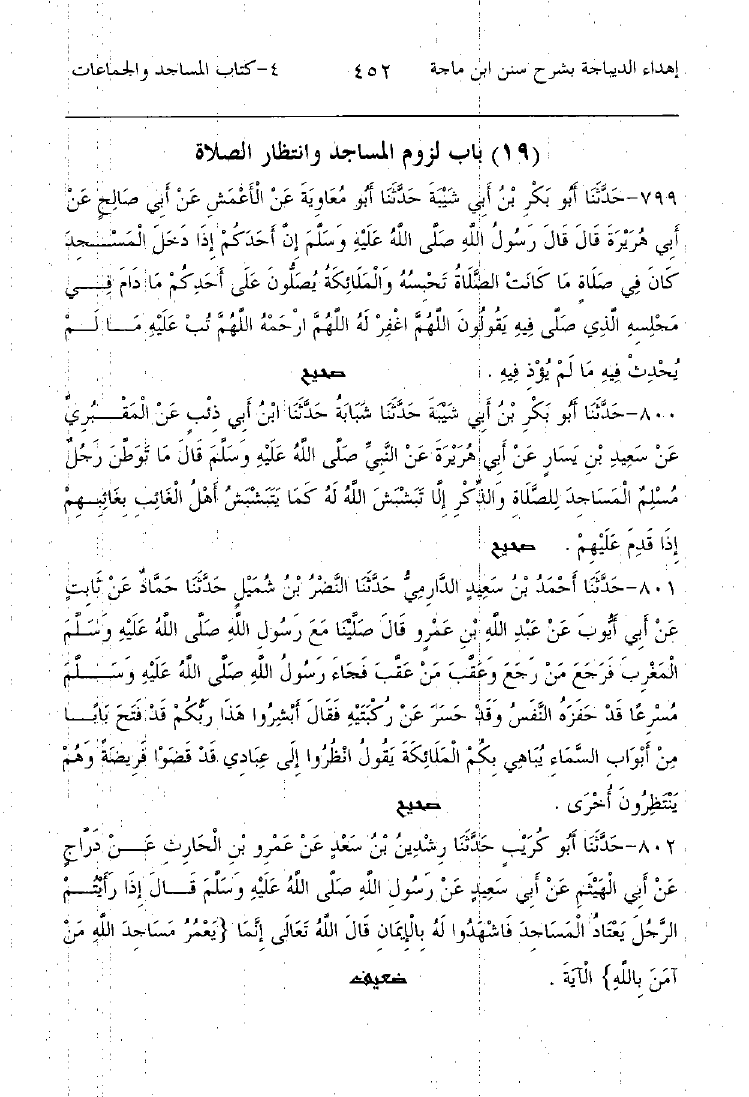 إهداء الديباجة بشرح سنن ابن ماجة ٤٥٢ ٤-كتاب المساجد والجماعات
(١٩) باب لزوم المساجد وانتظار الصلاة
٧٩٩-حَدَّثَنَا أَبُو بَكْرِ بْنُ أَبِي شَيْبَةَ حَدَّثَنَا أَبُو مُعَاوِيَةَ عَنْ الْأَعْمَشِ عَنْ أَبِي صَالِحٍ عَنْ
أَبِي هُرَيْرَةَ قَالَ قَالَ رَسُولُ اللَّهِ صَلَّى اللَّهُ عَلَيْهِ وَسَلَّمَ إِنَّ أَحَدَكُمْ إِذَا دَخَلَ الْمَسْجِدَ
كَانَ فِي صَلَاةٍ مَا كَانَتْ الصَّلَاةُ تَحْبِسُهُ وَالْمَلَائِكَةُ يُصَلُّونَ عَلَى أَحَدِكُمْ مَا دَامَ فِي
مَجْلِسِهِ الَّذِي صَلَّى فِيهِ يَقُولُونَ اللَّهُمَّ اغْفِرْ لَهُ اللَّهُمَّ ارْحَمْهُ اللَّهُمَّ تُبْ عَلَيْهِ مَا لَمْ
يُحْدِثْ فِيهِ مَا لَمْ يُؤْذِ فِيهِ . صحيح
٨٠٠-حَدَّثَنَا أَبُو بَكْرِ بْنُ أَبِي شَيْبَةَ حَدَّثَنَا شَبَابَةُ حَدَّثَنَا ابْنُ أَبِي ذِئْبٍ عَنْ الْمَقْبُرِيِّ
عَنْ سَعِيدِ بْنِ يَسَارٍ عَنْ أَبِي هُرَيْرَةَ عَنْ النَّبِيِّ صَلَّى اللَّهُ عَلَيْهِ وَسَلَّمَ قَالَ مَا تَوَطَّنَ رَجُلٌ
مُسْلِمٌ الْمَسَاجِدَ لِلصَّلَاةِ وَالذِّكْرِ إِلَّا تَبَشْبَشَ اللَّهُ لَهُ كَمَا يَتَبَشْبَشُ أَهْلُ الْغَائِبِ بِغَائِبِهِمْ
إِذَا قَدِمَ عَلَيْهِمْ . صحيح
٨٠١-حَدَّثَنَا أَحْمَدُ بْنُ سَعِيدٍ الدَّارِمِيُّ حَدَّثَنَا النَّضْرُ بْنُ شُمَيْلٍ حَدَّثَنَا حَمَّادٌ عَنْ ثَابِتٍ
عَنْ أَبِي أَيُّوبَ عَنْ عَبْدِ اللَّهِ بْنِ عَمْرٍو قَالَ صَلَّيْنَا مَعَ رَسُولِ اللَّهِ صَلَّى اللَّهُ عَلَيْهِ وَسَلَّمَ
الْمَغْرِبَ فَرَجَعَ مَنْ رَجَعَ وَعَقَّبَ مَنْ عَقَّبَ فَجَاءَ رَسُولُ اللَّهِ صَلَّى اللَّهُ عَلَيْهِ وَسَلَّمَ
مُسْرِعًا قَدْ حَفَزَهُ النَّفَسُ وَقَدْ حَسَرَ عَنْ رُكْبَتَيْهِ فَقَالَ أَبْشِرُوا هَذَا رَبُّكُمْ قَدْ فَتَحَ بَابًا
مِنْ أَبْوَابِ السَّمَاءِ يُبَاهِي بِكُمْ الْمَلَائِكَةَ يَقُولُ انْظُرُوا إِلَى عِبَادِي قَدْ قَضَوْا فَرِيضَةً وَهُمْ
يَنْتَظِرُونَ أُخْرَى . صحيح
٨٠٢-حَدَّثَنَا أَبُو كُرَيْبٍ حَدَّثَنَا رِشْدِينُ بْنُ سَعْدٍ عَنْ عَمْرِو بْنِ الْحَارِثِ عَنْ دَرَّاجٍ
عَنْ أَبِي الْهَيْثَمِ عَنْ أَبِي سَعِيدٍ عَنْ رَسُولِ اللَّهِ صَلَّى اللَّهُ عَلَيْهِ وَسَلَّمَ قَالَ إِذَا رَأَيْتُمْ
الرَّجُلَ يَعْتَادُ الْمَسَاجِدَ فَاشْهَدُوا لَهُ بِالْإِيمَانِ قَالَ اللَّهُ تَعَالَى إِنَّمَا {يَعْمُرُ مَسَاجِدَ اللَّهِ مَنْ
آمَنَ بِاللَّهِ} الْآيَةَ . ضعيف